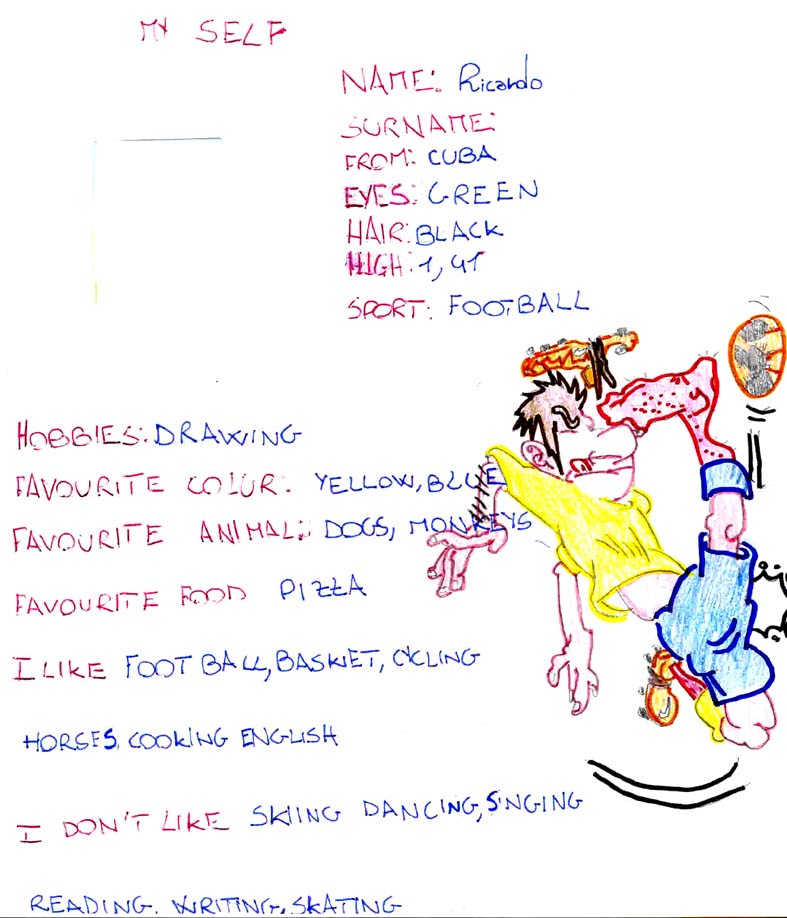 MY SELF
NAME: Ricardo
SURNAME:
FROM: CUBA
EYES: GREEN
HAIR: BLACK
HIGH: 1,41
SPORT: FOOTBALL
HOBBIES: DRAWING
FAVOURITE COLUR: YELLOW, BLUE
FAVOURITE ANIMAL: DOGS, MONKEYS
FAVOURITE FOOD PIZZA
I LIKE FOOTBALL, BASKET, CYCLING
HORSES, COOKING ENGLISH
I DON'T LIKE SKIING DANCING, SINGING
READING. WRITING, SKATING